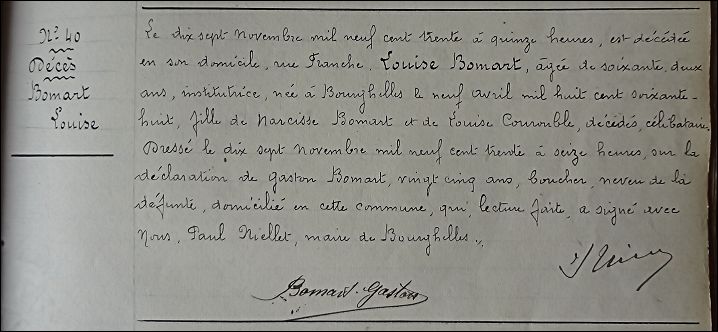 N° 40
Décès
Bomart
Louise
Le dix sept Novembre mil neuf cent trente à quinze heures, est décédée
en son domicile, rue Franche, Louise Bomart, âgée de soixante deux
ans, institutrice, née à Bourghelles le neuf avril mil huit cent soixante-
huit, fille de Narcisse Bomart et de Louise Courouble, décédés, célibataire.
Dressé le dix sept Novembre mil neuf cent trente à seize heures, sur la
déclaration de Gaston Bomart, vingt cinq ans, boucher, neveu de la
défunte, domicilié en cette commune, qui, lecture faite, a signé avec
Nous, Paul Niellet, maire de Bourghelles.
Bomart-Gaston